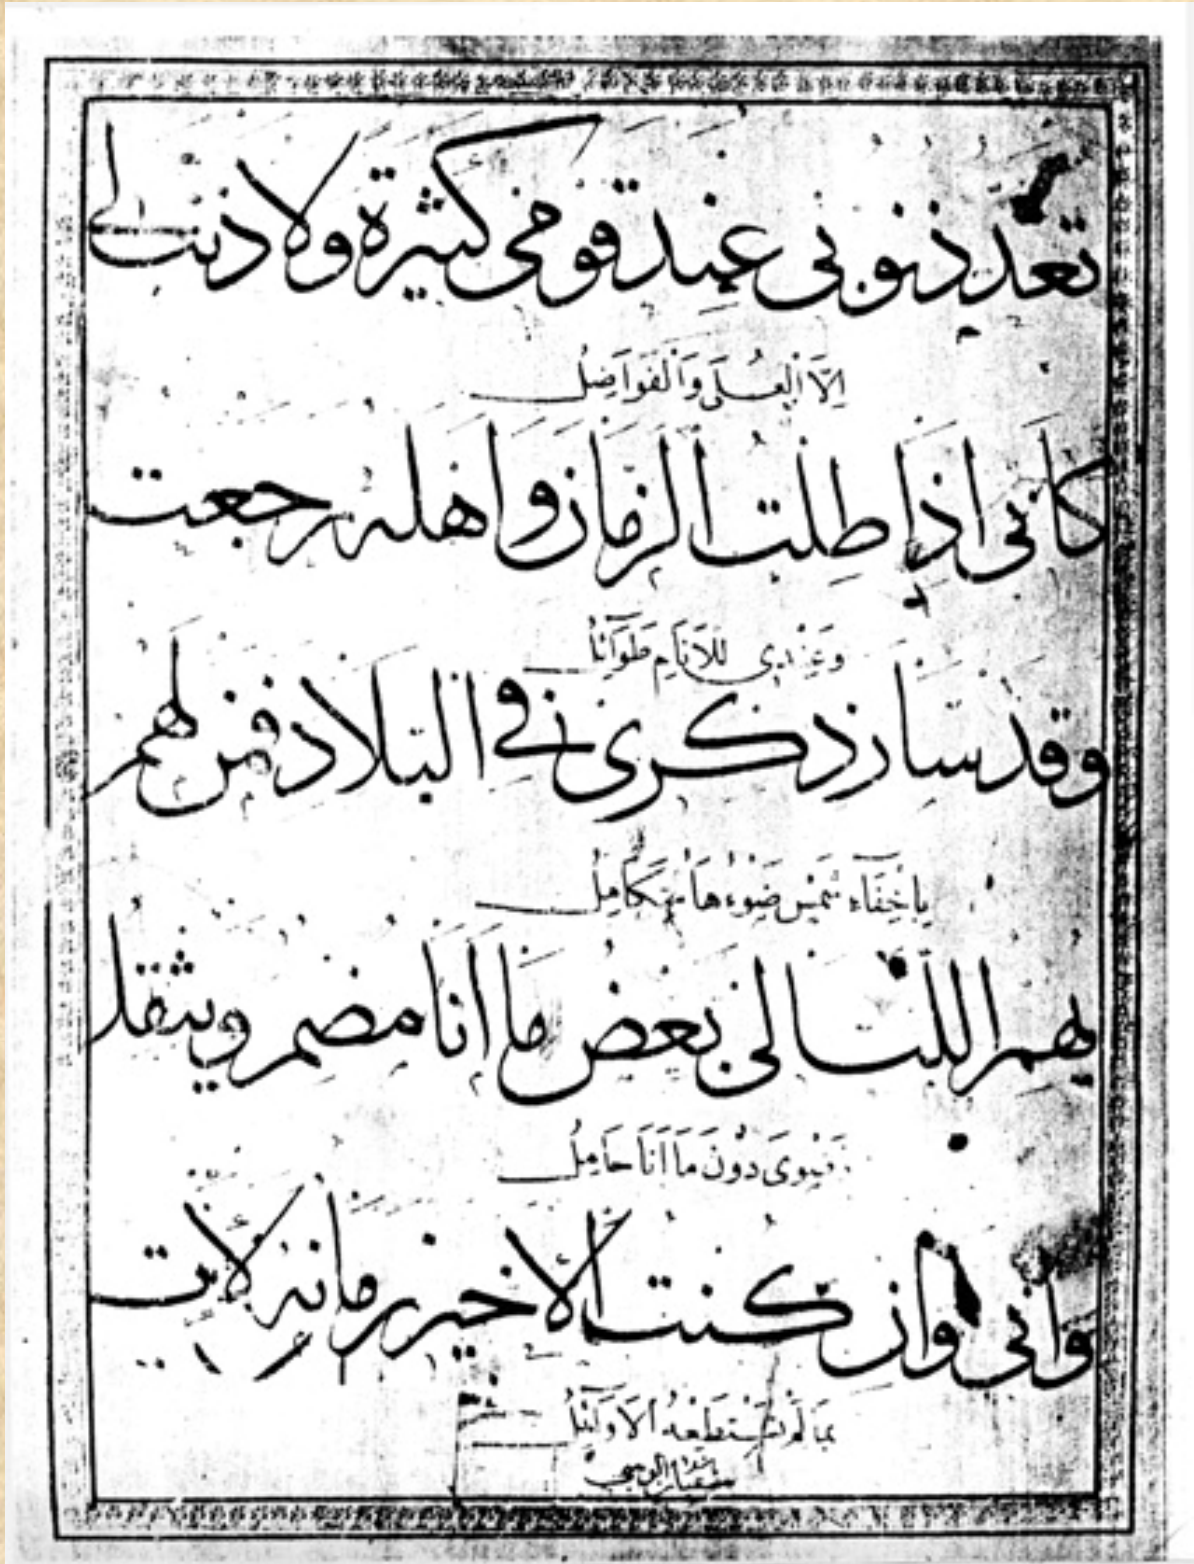 تعد ذنوبي عند قومي كثيرة ولا ذنب لي
اِلَّا الْعُلَى وَالْفَوَاضِلُ
كأني اذا طلت الزمان واهله رجعت
وَعِنْدِي لِلْاَنَامِ طَوَآئِلُ
وقد سار ذكرى في البلاد فمن لهم
بِاِخْفَآءِ شَمْسٍ ضَوْءُهَا مُتَكَامِلُ
يهم الليالى بعض ما انا مضمر ويثقل
رَضْوَى دُونَ مَا اَنَا حَامِلُ
وانى وان كنت الاخير زمانه لآت
بِمَا لَمْ تَسْتَطِعْهُ الْاَوَآئِلُ
سفيان الوهبي